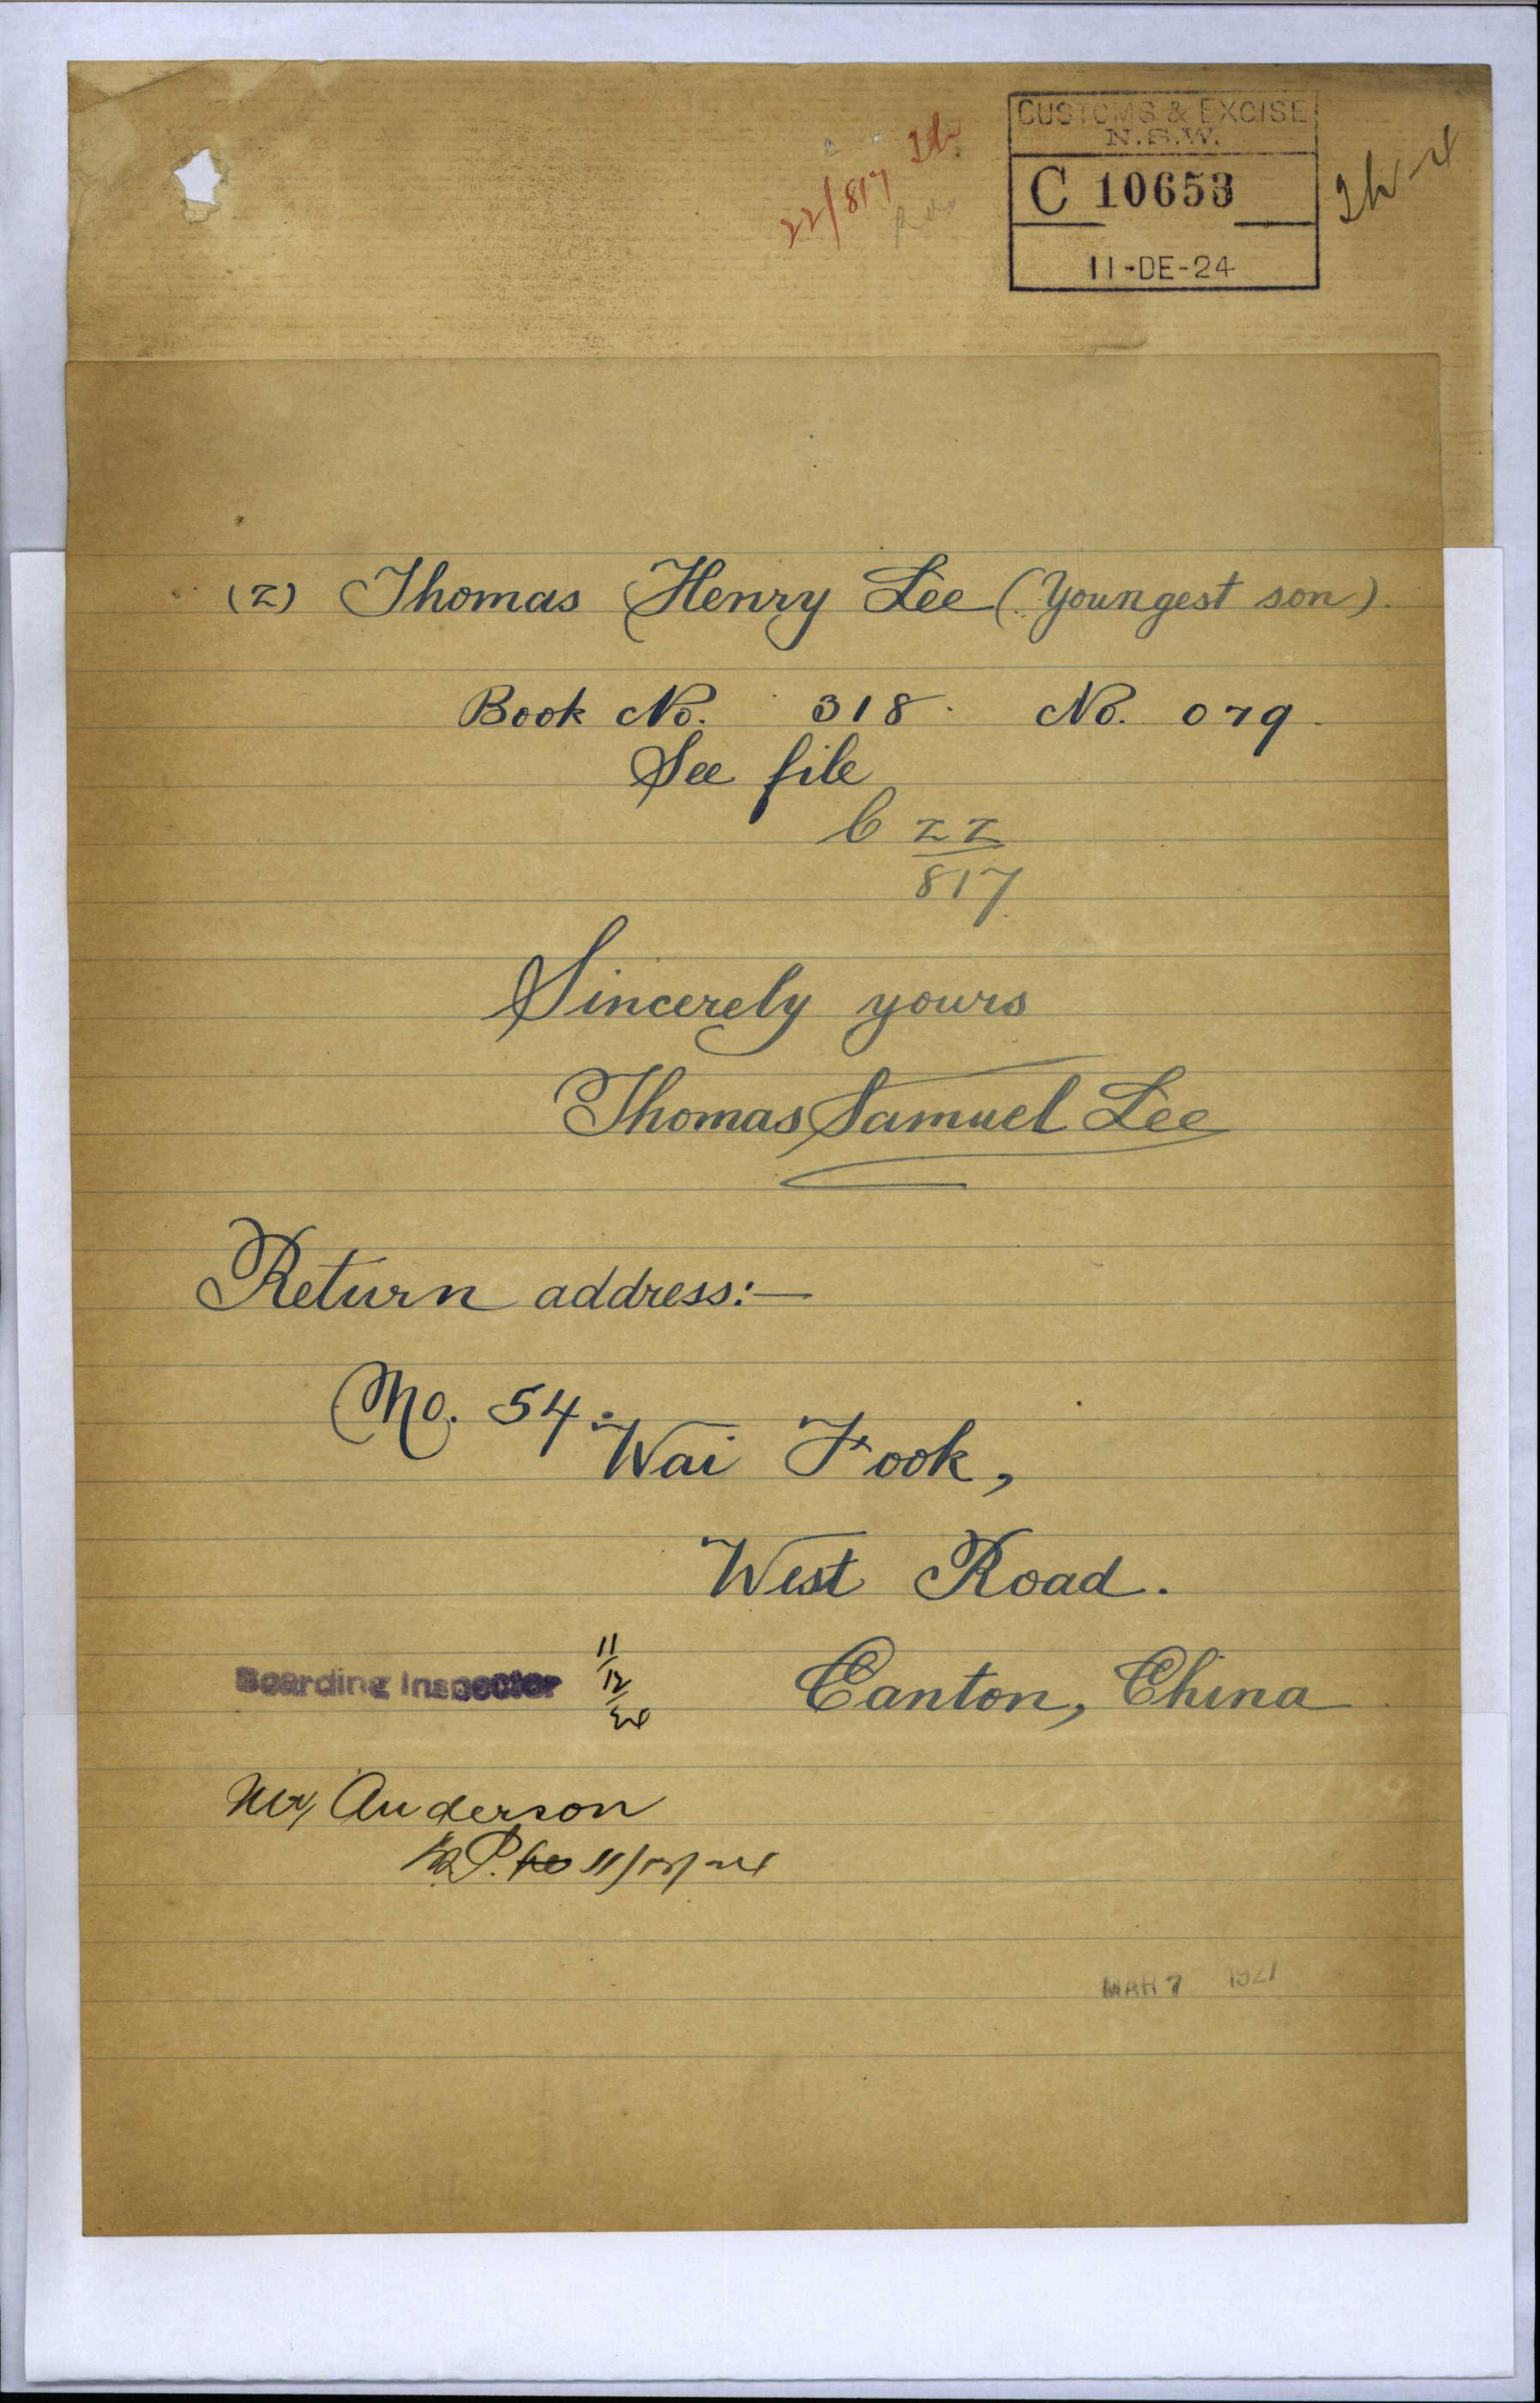 CUSTOMS & EXCISE
N.S.W.
C 10653
11-DE-24
22/817
(2) Thomas Henry Lee (Youngest son).
Book No. 318. No. 079.
See file
C 22
817
Sincerely yours
Thomas Samuel Lee
Return address:—
No. 54.
Wai Fook,
West Road.
Canton, China
Boarding Inspector
11/12/24
Mr Anderson
11/12/24
MAR 7 1927